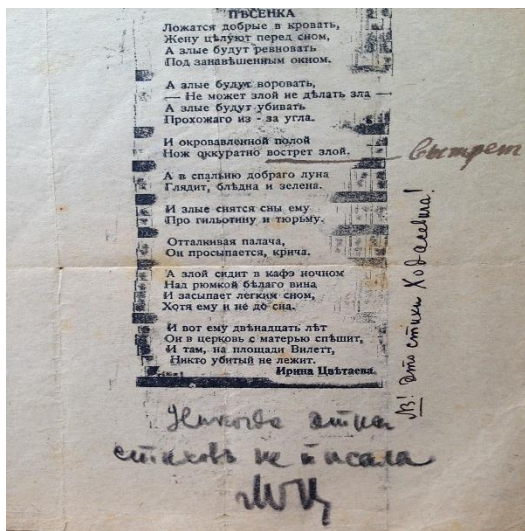 ПѢСЕНКА
Ложатся добрые в кровать,
Жену цѣлуют перед сном,
А злые будут ревновать
Под занавѣшенным окном.
А злые будут воровать,
— Не может злой не дѣлать зла —
А злые будут убивать
Прохожаго из - за угла.
И окровавленной полой
Нож оккуратно вострет злой.
вытрет
А в спальню добраго луна
Глядит, блѣдна и зелена.
И злые снятся сны ему
Про гильотину и тюрьму.
Отталкивая палача,
Он просыпается, крича.
А злой сидит в кафэ ночном
Над рюмкой бѣлаго вина
И засыпает легким сном,
Хотя ему и не до сна.
И вот ему двѣнадцать лѣт
Он в церковь с матерью спѣшит,
И там, на площади Вилетт,
Никто убитый не лежит.
Ирина Цвѣтаева.
NB! Это стихи Ходасевича!
Никогда этих
стиховъ не писала
МЦ